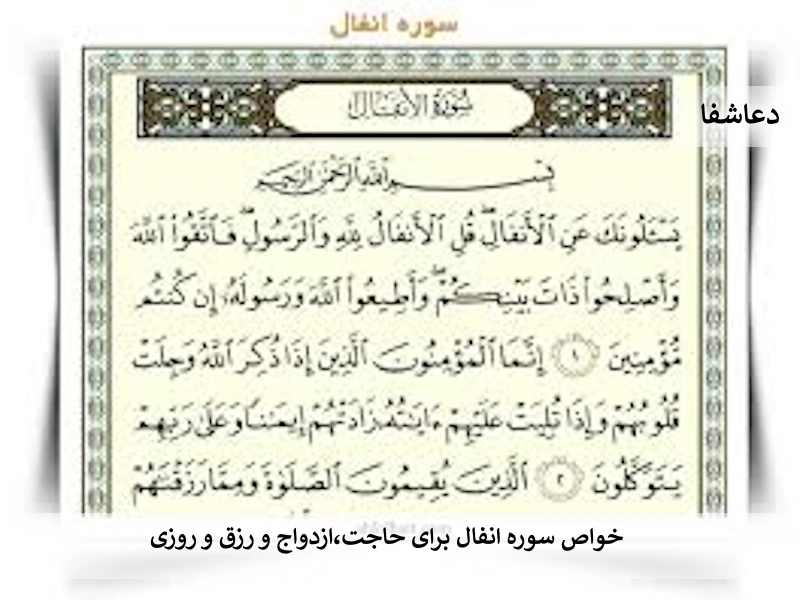 سوره انفال
دعاشفا
سُورَةُ الأَنفَالِ
بِسْمِ اللَّهِ الرَّحْمَٰنِ الرَّحِيمِ
يَسْـَٔلُونَكَ عَنِ ٱلْأَنفَالِ ۖ قُلِ ٱلْأَنفَالُ لِلَّهِ وَٱلرَّسُولِ ۖ فَٱتَّقُوا۟ ٱللَّهَ
وَأَصْلِحُوا۟ ذَاتَ بَيْنِكُمْ ۖ وَأَطِيعُوا۟ ٱللَّهَ وَرَسُولَهُۥٓ إِن كُنتُم
مُّؤْمِنِينَ ١ إِنَّمَا ٱلْمُؤْمِنُونَ ٱلَّذِينَ إِذَا ذُكِرَ ٱللَّهُ وَجِلَتْ
قُلُوبُهُمْ وَإِذَا تُلِيَتْ عَلَيْهِمْ ءَايَـٰتُهُۥ زَادَتْهُمْ إِيمَـٰنًا وَعَلَىٰ رَبِّهِمْ
يَتَوَكَّلُونَ ٢ ٱلَّذِينَ يُقِيمُونَ ٱلصَّلَوٰةَ وَمِمَّا رَزَقْنَـٰهُمْ
خواص سوره انفال برای حاجت،ازدواج و رزق و روزی